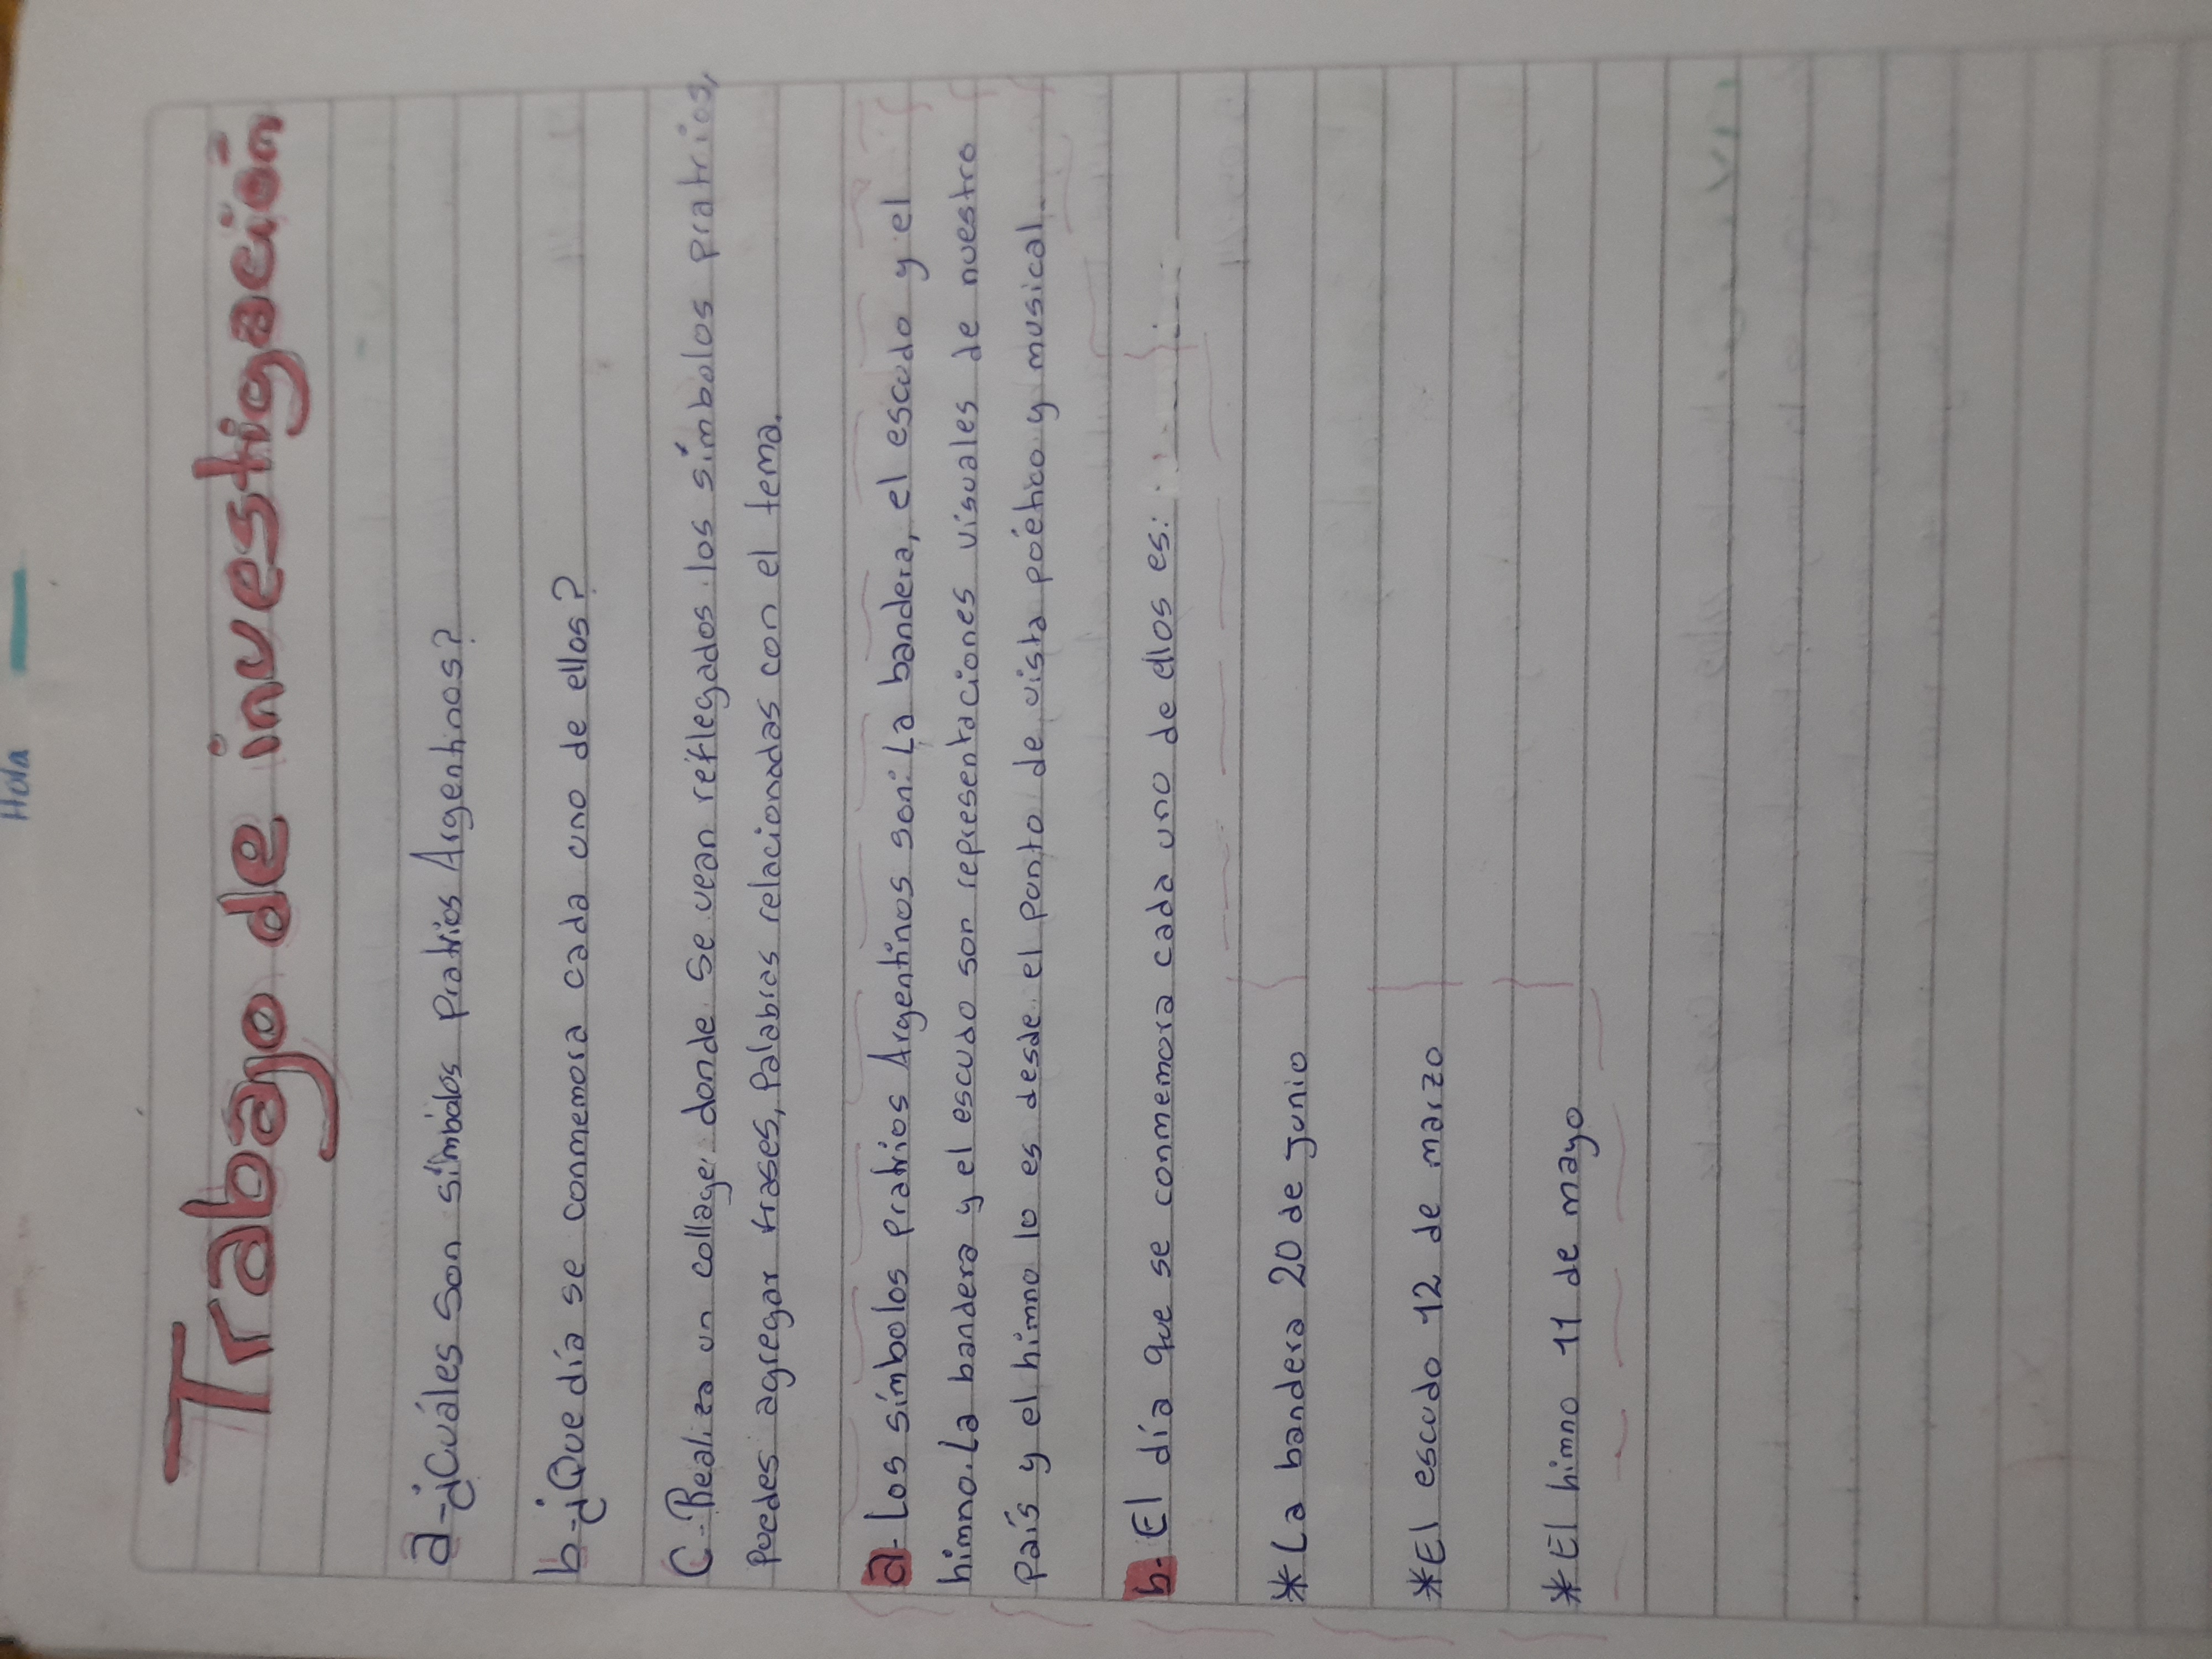 Hola
Trabajo de investigación
a-¿Cuáles son símbolos pratrios Argentinos?
b-¿Que día se conmemora cada uno de ellos?
C-Realiza un collage donde se vean reflegados los símbolos pratrios,
Puedes agregar frases, Palabras relacionadas con el tema.
a- Los símbolos pratrios Argentinos son: La bandera, el escudo y el
himno. La bandera y el escudo son representaciones visuales de nuestro
País y el himno lo es desde el punto de vista poético y musical.
b- El día que se conmemora cada uno de ellos es:
*La bandera 20 de Junio
*El escudo 12 de marzo
*El himno 11 de mayo